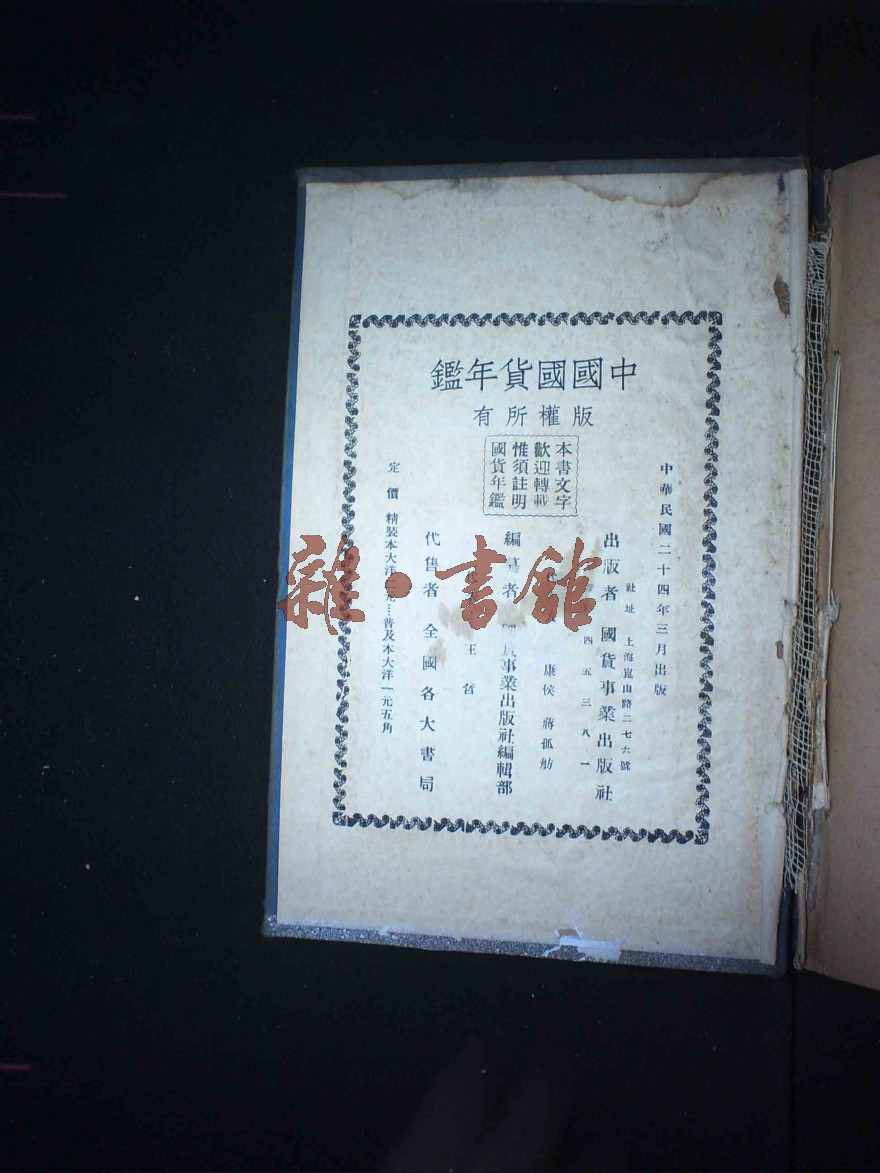 中國國貨年鑑
版權所有
本書文字
歡迎轉載
惟須註明
國貨年鑑
中華民國二十四年三月出版
出版者 國貨事業出版社
社址 上海崑山路二七六號
四五三八一
康侯 蔣孤舫
編 者 國貨事業出版社編輯部
王哲
代售者 全國各大書局
定價 精裝本大洋 元…普及本大洋一元五角
雜·書館